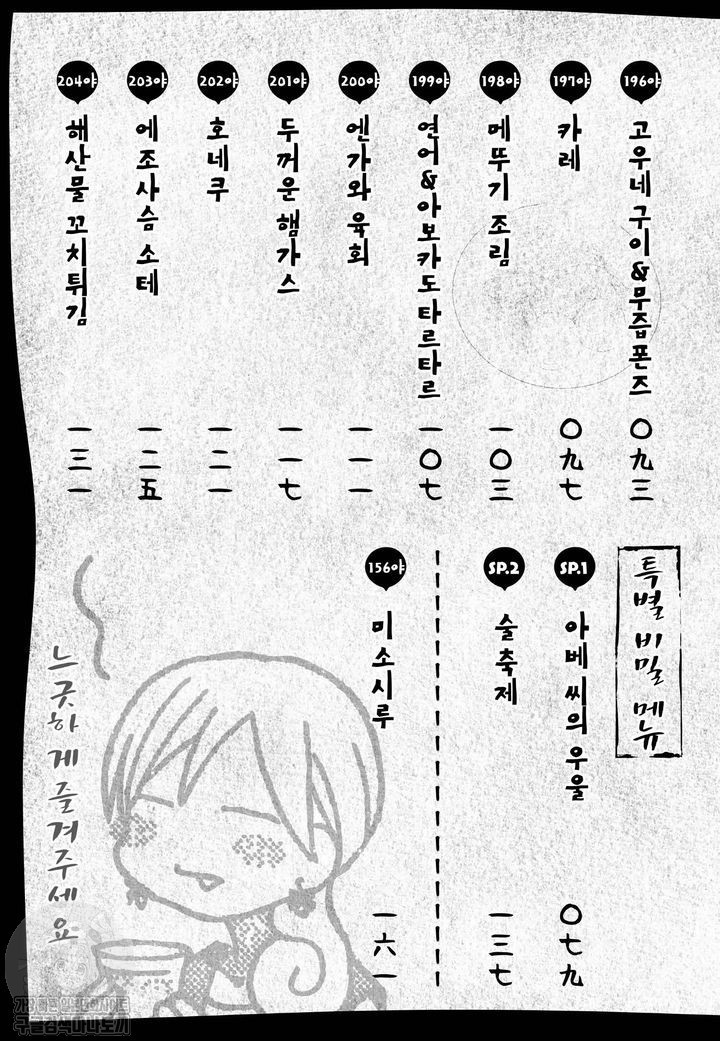 196야
고우네 구이&무즙 폰즈
〇九三
197야
카레
〇九七
198야
메뚜기 조림
一〇三
199야
연어&아보카도 타르타르
一〇七
200야
엔가와 육회
一一一
201야
두꺼운 햄가스
一一七
202야
호네쿠
一二一
203야
에조사슴 소테
一二五
204야
해산물 꼬치튀김
一三一
특별 비밀 메뉴
SP.1
아베 씨의 우울
〇七九
SP.2
술 축제
一三七
156야
미소시루
一六一
느긋하게 즐겨주세요